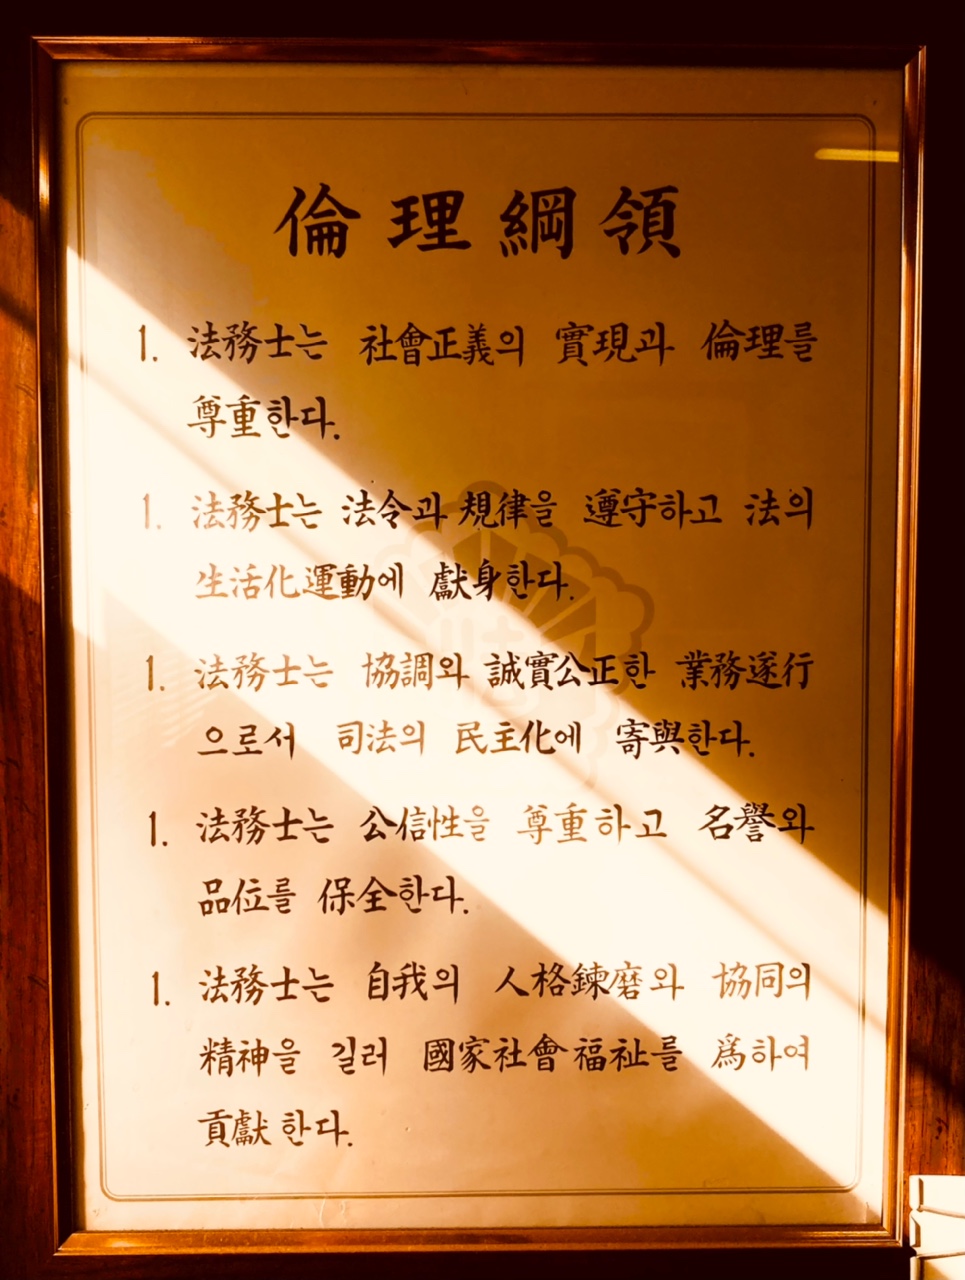 倫理綱領
1. 法務士는 社會正義의 實現과 倫理를
尊重한다.
1. 法務士는 法令과 規律을 遵守하고 法의
生活化運動에 獻身한다.
1. 法務士는 協調와 誠實公正한 業務遂行
으로서 司法의 民主化에 寄與한다.
1. 法務士는 公信性을 尊重하고 名譽와
品位를 保全한다.
1. 法務士는 自我의 人格鍊磨와 協同의
精神을 길러 國家社會福祉를 爲하여
貢獻한다.